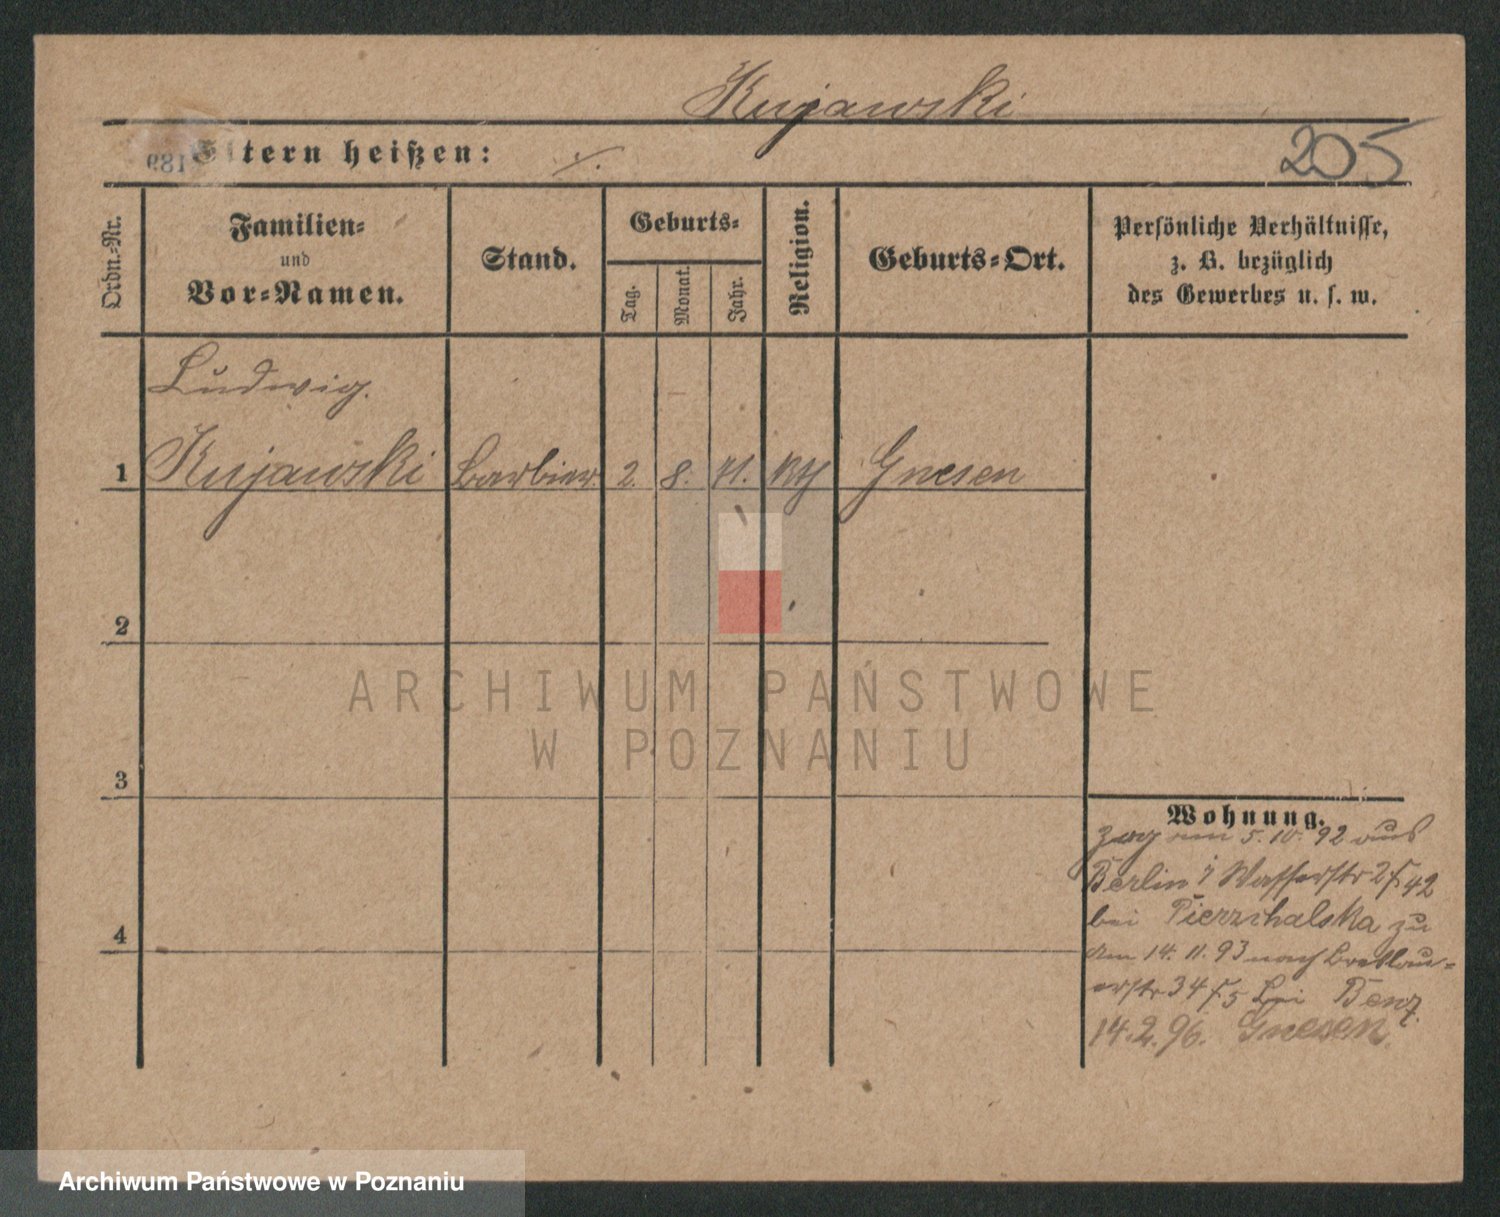 Kujawski
Eltern heißen: ·/.
205
189
Ordn.-Nr.
Familien-
und
Vor-Namen.
Stand.
Geburts-
Tag.
Monat.
Jahr.
Religion.
Geburts-Ort.
Persönliche Verhältnisse,
z. B. bezüglich
des Gewerbes u. s. w.
Ludwig.
1 Kujawski Barbier 2. 8. 71. kth Gnesen
2
3
4
Wohnung.
zog am 5. 10. 92 aus
Berlin Wasserstr 2 42
bei Pierzchalska zu
am 14. 11. 93 nach Breslau-
erstr 34 bei Benz
14. 2. 96. Gnesen
ARCHIWUM PAŃSTWOWE
W POZNANIU
Archiwum Państwowe w Poznaniu